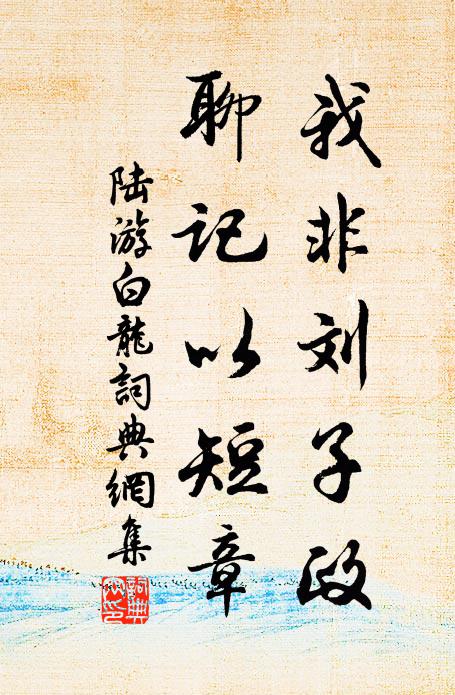 我非刘子政
聊记以短章
陆游白龍詞典網集